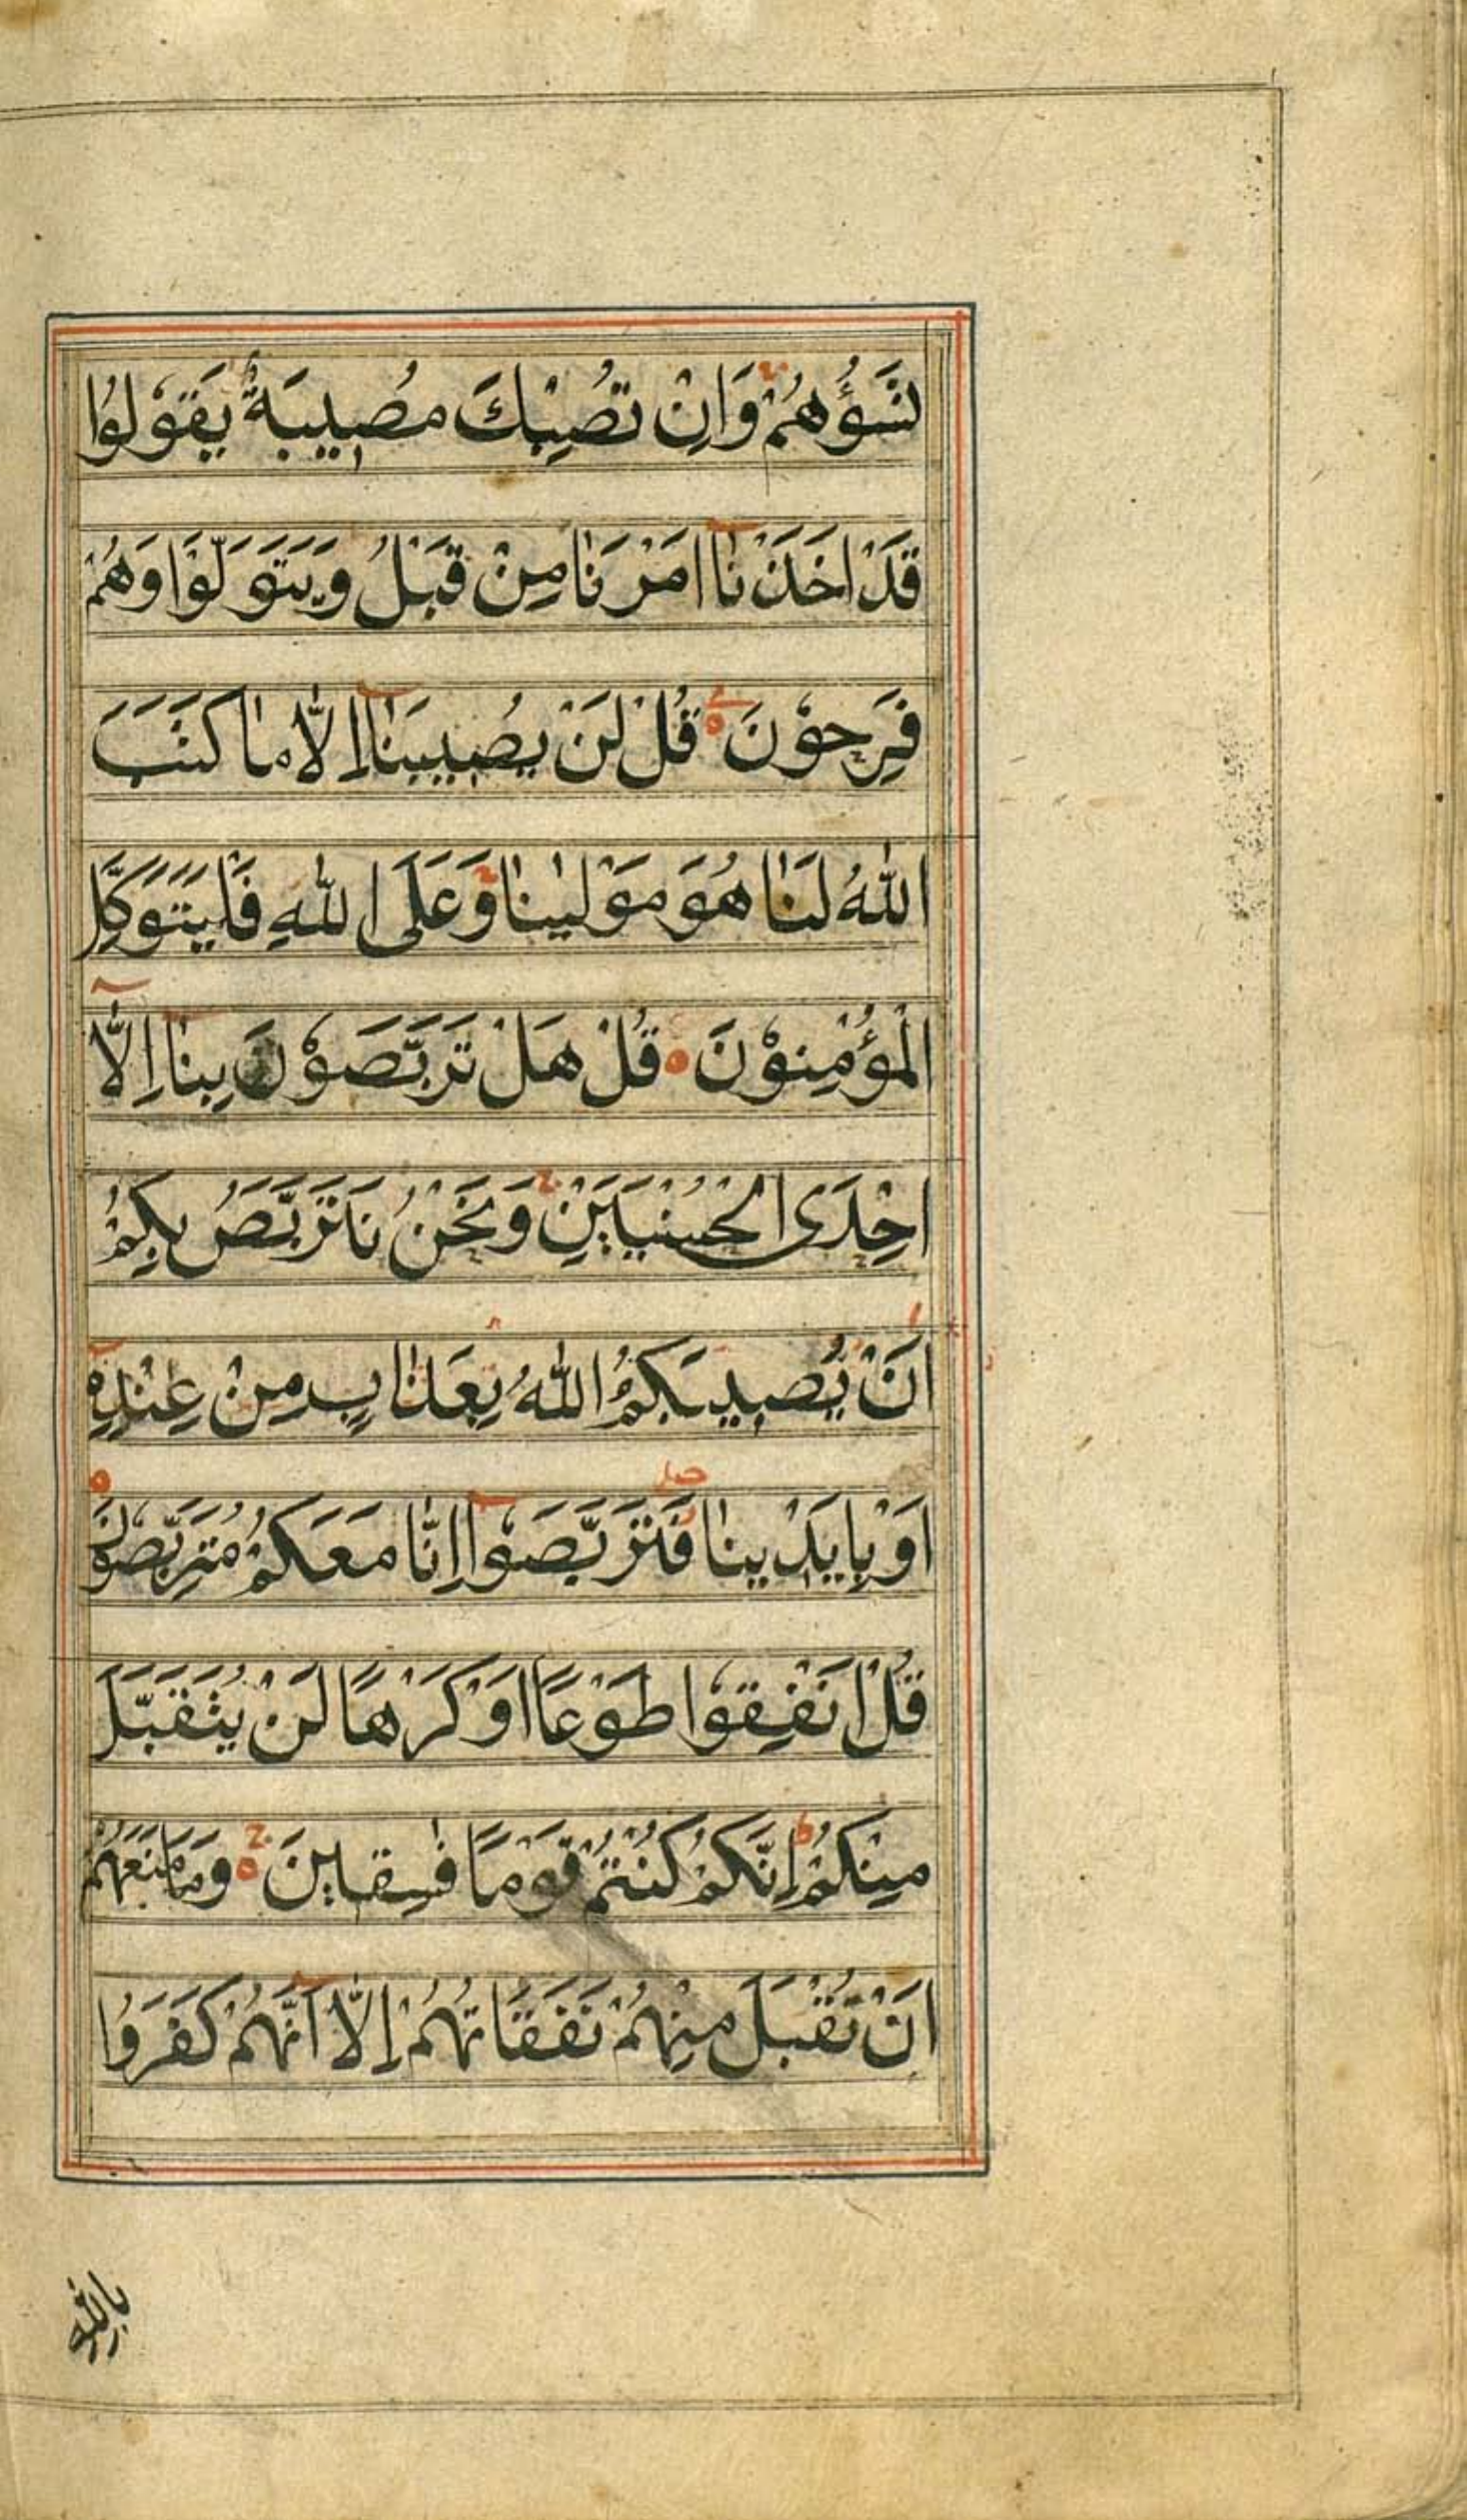 تَسُؤْهُمْ وَاِنْ تُصِبْكَ مُصِيبَةٌ يَقُولُوا
قَدْ اَخَذْنَا اَمْرَنَا مِنْ قَبْلُ وَيَتَوَلَّوْا وَهُمْ
فَرِحُوْنَ قُلْ لَنْ يُصِيبَنَا اِلَّا مَا كَتَبَ
اللّٰهُ لَنَا هُوَ مَوْلٰينَا وَعَلَى اللّٰهِ فَلْيَتَوَكَّلِ
الْمُؤْمِنُوْنَ قُلْ هَلْ تَرَبَّصُوْنَ بِنَا اِلَّا
اِحْدَى الْحُسْنَيَيْنِ وَنَحْنُ نَتَرَبَّصُ بِكُمْ
اَنْ يُصِيبَكُمُ اللّٰهُ بِعَذَابٍ مِنْ عِنْدِهٖ
اَوْ بِاَيْدِينَا فَتَرَبَّصُوا اِنَّا مَعَكُمْ مُتَرَبِّصُوْنَ
قُلْ اَنْفِقُوْا طَوْعًا اَوْ كَرْهًا لَنْ يُتَقَبَّلَ
مِنْكُمْ اِنَّكُمْ كُنْتُمْ قَوْمًا فٰسِقِينَ وَمَا مَنَعَهُمْ
اَنْ تُقْبَلَ مِنْهُمْ نَفَقَاتُهُمْ اِلَّا اَنَّهُمْ كَفَرُوا
بالله